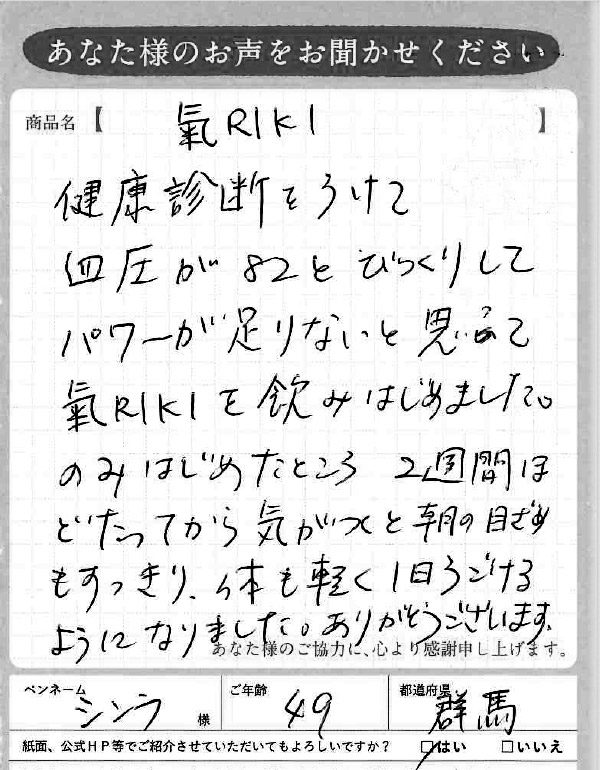 あなた様のお声をお聞かせください
商品名【 氣RIKI 】
健康診断をうけて
血圧が82とびっくりして
パワーが足りないと思って
氣RIKIを飲みはじめました。
のみはじめたところ 2週間ほ
どたってから気がつくと朝の目ざめ
もすっきり、体も軽く1日うごける
ようになりました。ありがとうございます。
あなた様のご協力に、心より感謝申し上げます。
ペンネーム シンラ 様 ご年齢 49 都道府県 群馬
紙面、公式HP等でご紹介させていただいてもよろしいですか? □はい □いいえ